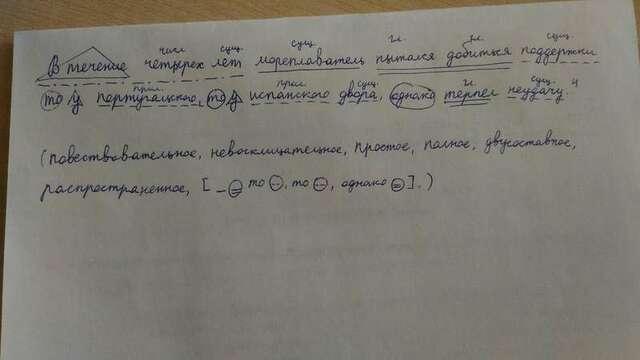 числ сущ. сущ. гл. гл. сущ.
В течение четырех лет мореплаватель пытался добиться поддержки
прил. прил. сущ. гл. сущ. 4
то у португальского, то у испанского двора, однако терпел неудачу.
(повествовательное, невосклицательное, простое, полное, двусоставное,
распространенное, [ то , то , однако ].)